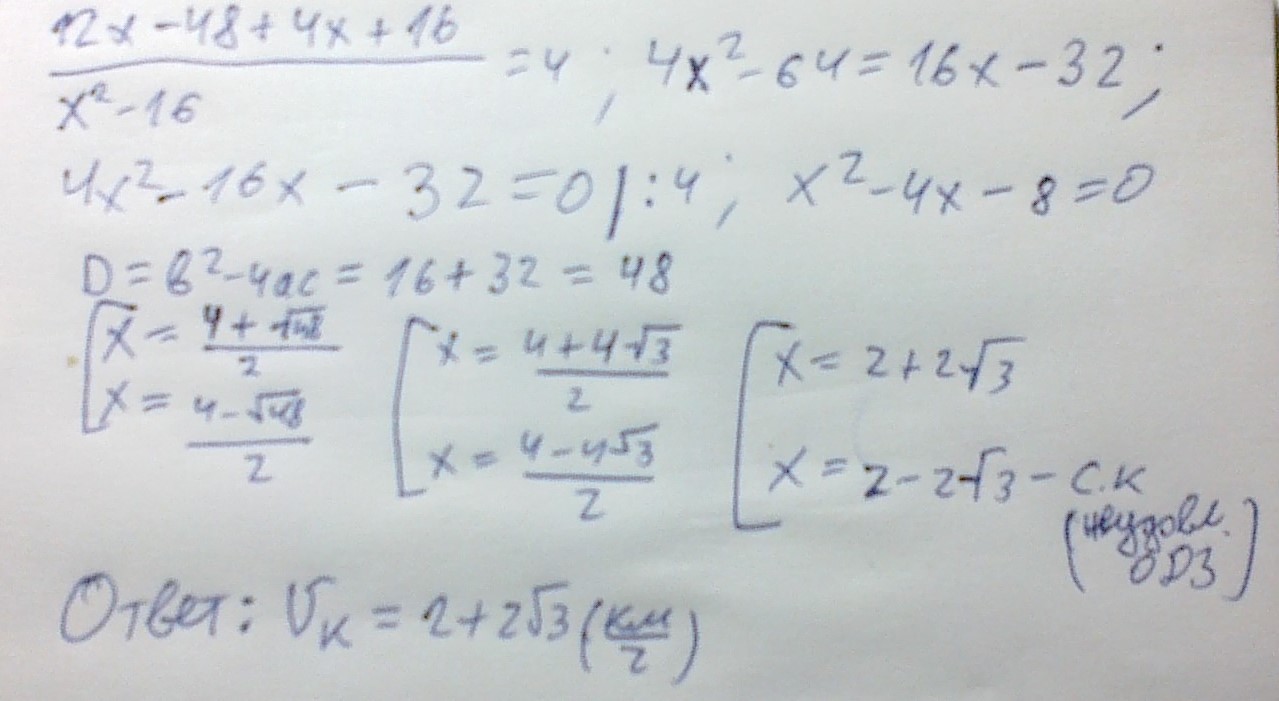 (12x - 48 + 4x + 16)/(x² - 16) = 4 ; 4x² - 64 = 16x - 32 ;
4x² - 16x - 32 = 0 | : 4 ; x² - 4x - 8 = 0
D = b² - 4ac = 16 + 32 = 48
[ x = (4 + √48)/2 [ x = (4 + 4√3)/2 [ x = 2 + 2√3
x = (4 - √48)/2 x = (4 - 4√3)/2 x = 2 - 2√3 - с.к
(неудовл. ОДЗ)
Ответ: Vк = 2 + 2√3 (км/ч)